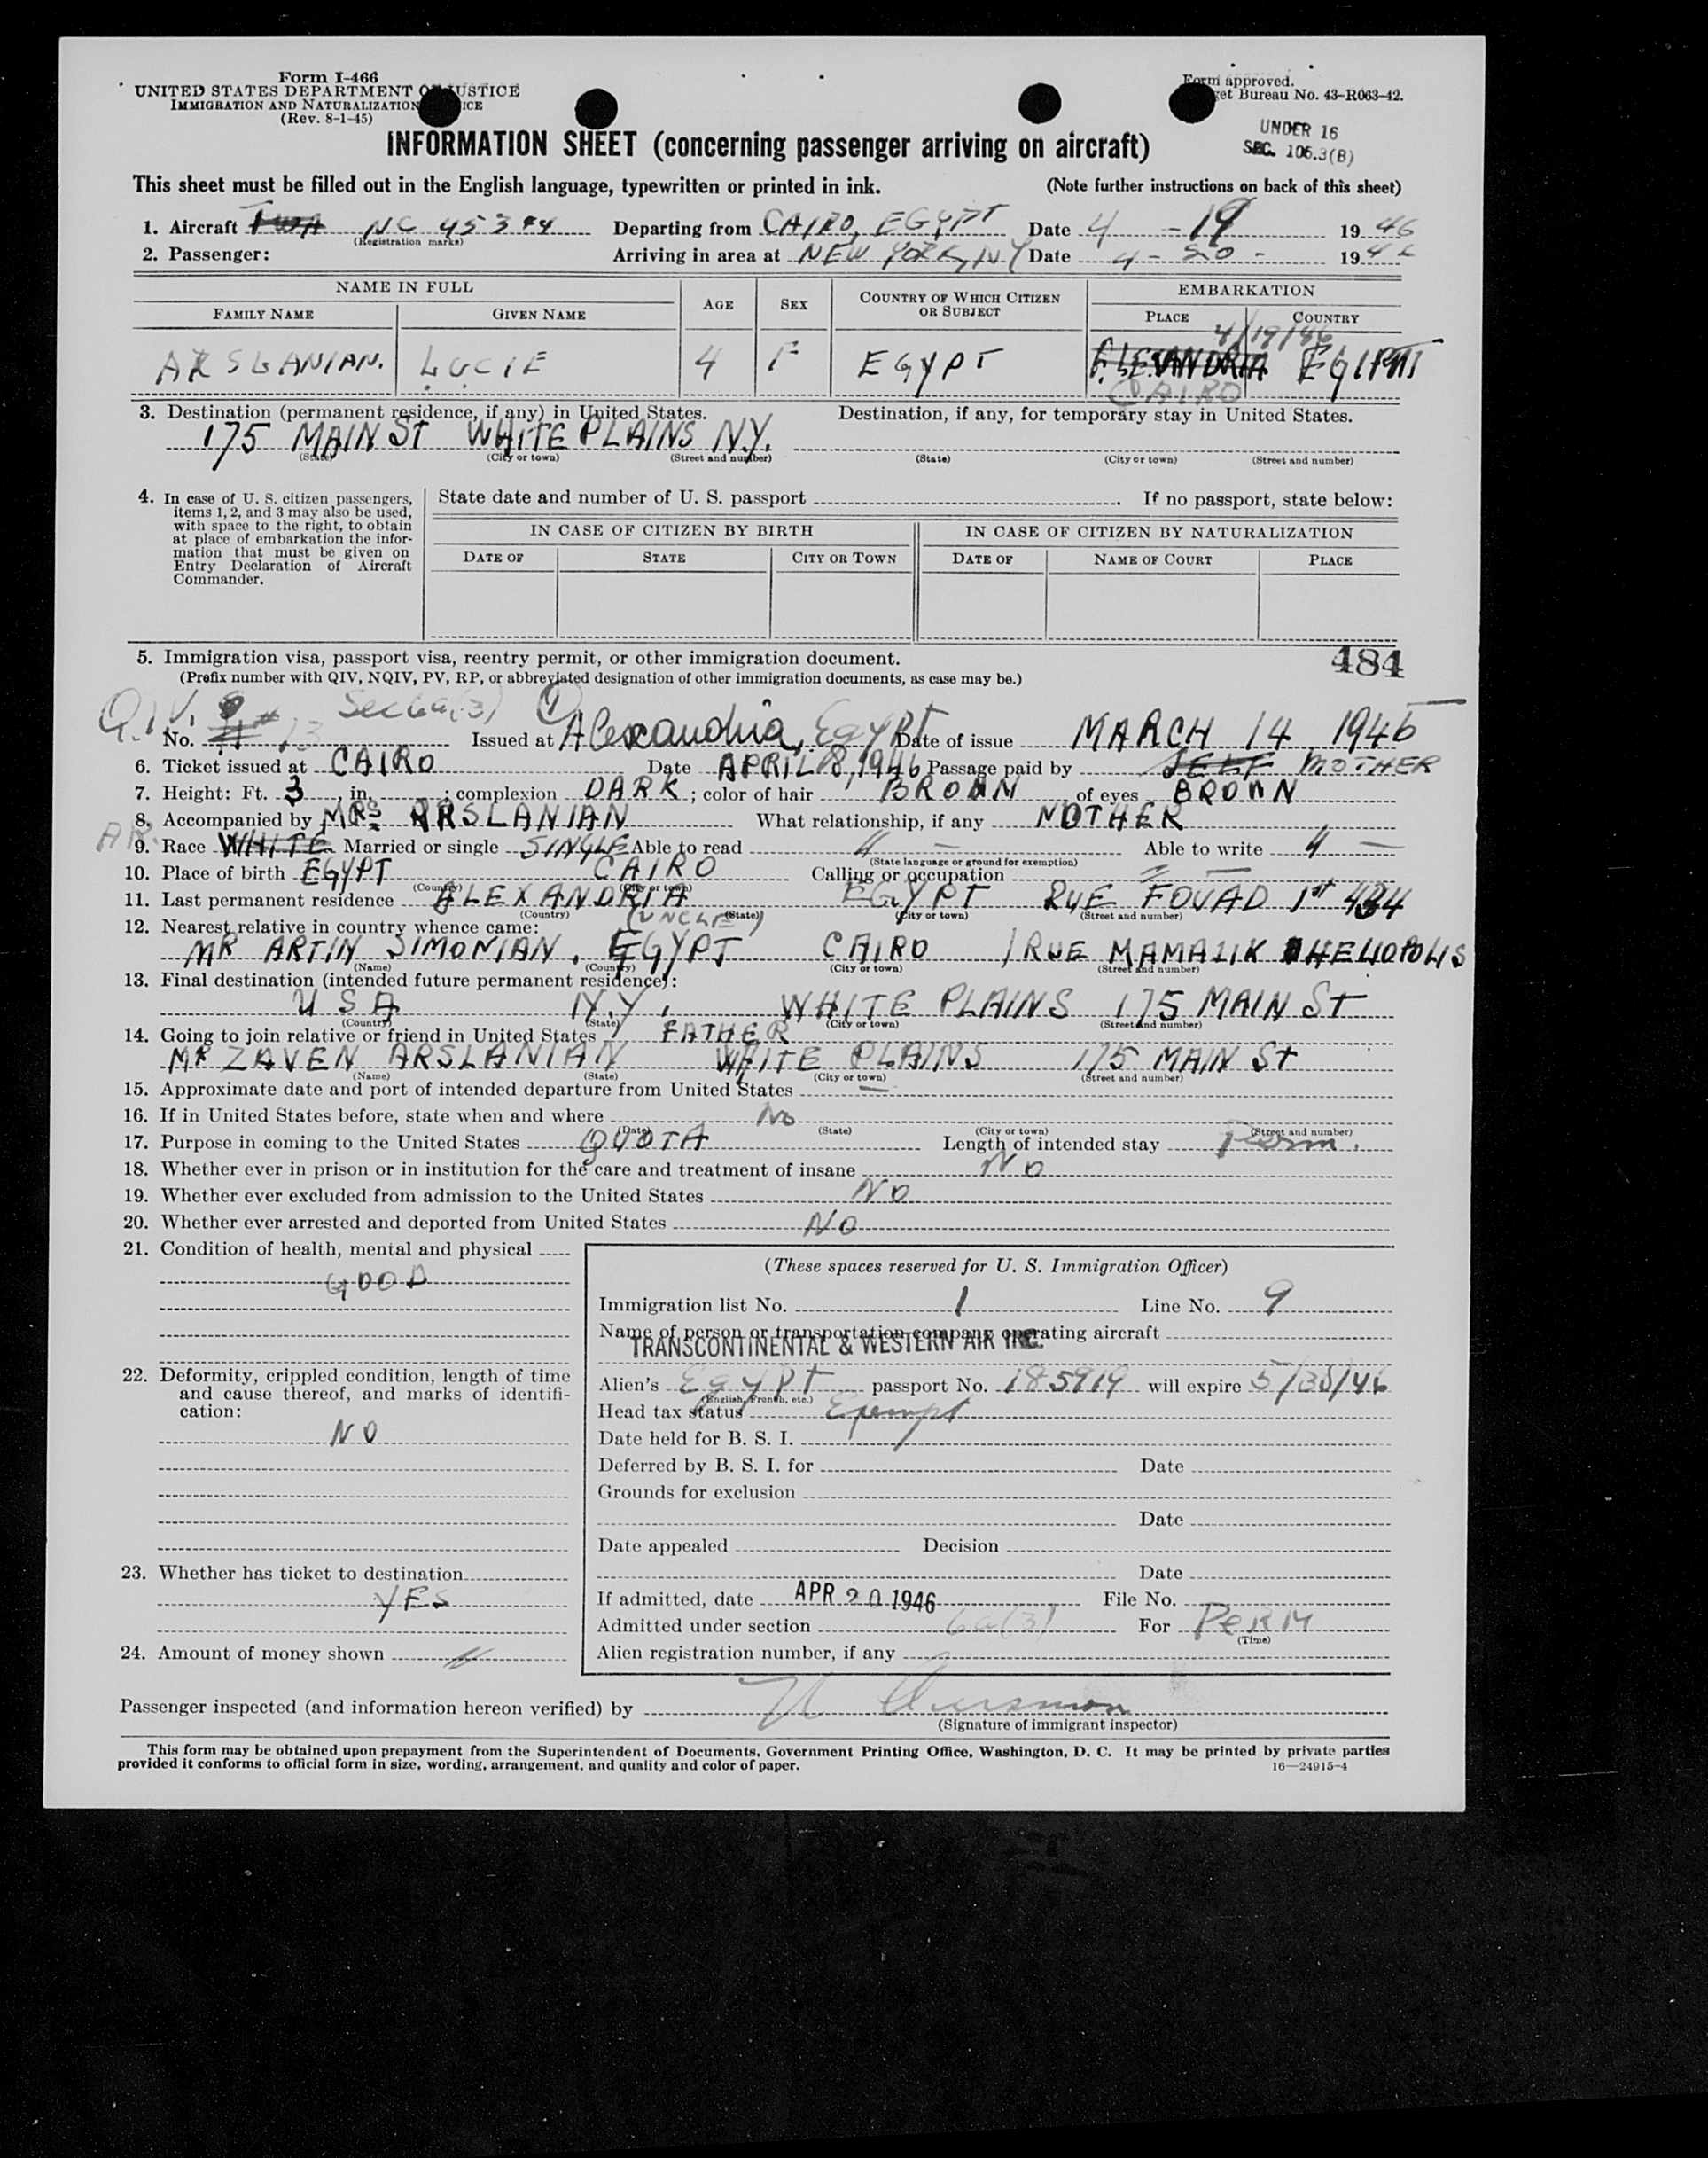 Form I-466
UNITED STATES DEPARTMENT OF JUSTICE
IMMIGRATION AND NATURALIZATION SERVICE
(Rev. 8-1-45)
Form approved.
Budget Bureau No. 43-R063-42.
UNDER 16
SEC. 105.3(B)
INFORMATION SHEET (concerning passenger arriving on aircraft)
This sheet must be filled out in the English language, typewritten or printed in ink. (Note further instructions on back of this sheet)
1. Aircraft TWA NC 45344 Departing from CAIRO, EGYPT Date 4 - 19 1946
(Registration marks)
2. Passenger: Arriving in area at NEW YORK, NY Date 4 - 20 - 1946
NAME IN FULL AGE SEX COUNTRY OF WHICH CITIZEN OR SUBJECT EMBARKATION
FAMILY NAME GIVEN NAME PLACE COUNTRY
4/19/46
ARSLANIAN. LUCIE 4 F EGYPT ALEXANDRIA EGYPT
CAIRO
3. Destination (permanent residence, if any) in United States. Destination, if any, for temporary stay in United States.
175 MAIN ST WHITE PLAINS N.Y.
(State) (City or town) (Street and number) (State) (City or town) (Street and number)
4. In case of U. S. citizen passengers, items 1, 2, and 3 may also be used, with space to the right, to obtain at place of embarkation the information that must be given on Entry Declaration of Aircraft Commander.
State date and number of U. S. passport . If no passport, state below:
IN CASE OF CITIZEN BY BIRTH IN CASE OF CITIZEN BY NATURALIZATION
DATE OF STATE CITY OR TOWN DATE OF NAME OF COURT PLACE
5. Immigration visa, passport visa, reentry permit, or other immigration document. 484
(Prefix number with QIV, NQIV, PV, RP, or abbreviated designation of other immigration documents, as case may be.)
Q.I.V. Sec 6a(3)
No. 13 Issued at Alexandria, Egypt Date of issue MARCH 14 1946
6. Ticket issued at CAIRO Date APRIL 18, 1946 Passage paid by SELF MOTHER
7. Height: Ft. 3, in. ; complexion DARK; color of hair BROWN of eyes BROWN
8. Accompanied by MRS ARSLANIAN What relationship, if any MOTHER
AR.
9. Race WHITE Married or single SINGLE Able to read 4 — Able to write 4 —
(State language or ground for exemption)
10. Place of birth EGYPT CAIRO Calling or occupation —
(Country) (City or town)
11. Last permanent residence ALEXANDRIA EGYPT RUE FOUAD 1st 434
(Country) (State) (City or town) (Street and number)
12. Nearest relative in country whence came: (UNCLE)
MR ARTIN SIMONIAN. EGYPT CAIRO 1 RUE MAMALIK HELIOPOLIS
(Name) (Country) (City or town) (Street and number)
13. Final destination (intended future permanent residence):
USA N.Y. WHITE PLAINS 175 MAIN ST
(Country) (State) (City or town) (Street and number)
14. Going to join relative or friend in United States FATHER
MR ZAVEN ARSLANIAN WHITE PLAINS 175 MAIN ST
(Name) (State) (City or town) (Street and number)
15. Approximate date and port of intended departure from United States —
16. If in United States before, state when and where No
(Date) (State) (City or town) (Street and number)
17. Purpose in coming to the United States QUOTA Length of intended stay Perm.
18. Whether ever in prison or in institution for the care and treatment of insane NO
19. Whether ever excluded from admission to the United States NO
20. Whether ever arrested and deported from United States NO
21. Condition of health, mental and physical
GOOD
22. Deformity, crippled condition, length of time and cause thereof, and marks of identification:
NO
23. Whether has ticket to destination
YES
24. Amount of money shown
(These spaces reserved for U. S. Immigration Officer)
Immigration list No. 1 Line No. 9
Name of person or transportation company operating aircraft
TRANSCONTINENTAL & WESTERN AIR INC.
Alien's Egypt passport No. 185919 will expire 5/30/46
(English, French, etc.)
Head tax status Exempt
Date held for B. S. I.
Deferred by B. S. I. for Date
Grounds for exclusion
Date
Date appealed Decision
Date
If admitted, date APR 20 1946 File No.
Admitted under section 6a(3) For PERM
(Time)
Alien registration number, if any
Passenger inspected (and information hereon verified) by
(Signature of immigrant inspector)
This form may be obtained upon prepayment from the Superintendent of Documents, Government Printing Office, Washington, D. C. It may be printed by private parties
provided it conforms to official form in size, wording, arrangement, and quality and color of paper. 16—24915-4